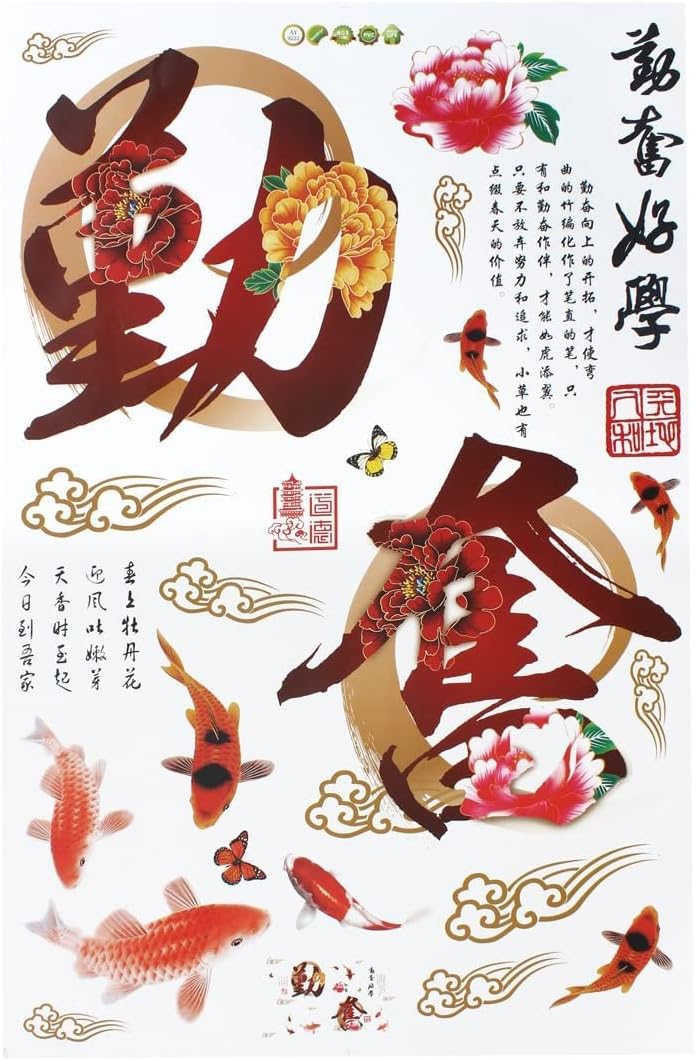 AY
9222
SGS
PVC
勤奮好學
勤奋向上的开拓，才使弯
曲的竹编化作了笔直的笔，只
有和勤奋作伴，才能如虎添翼。
只要不放弃努力和追求，小草也有
点缀春天的价值。
勤
天地
人和
道德
奮
春上牡丹花
迎风吐嫩芽
天香时至起
今日到吾家
勤
奮